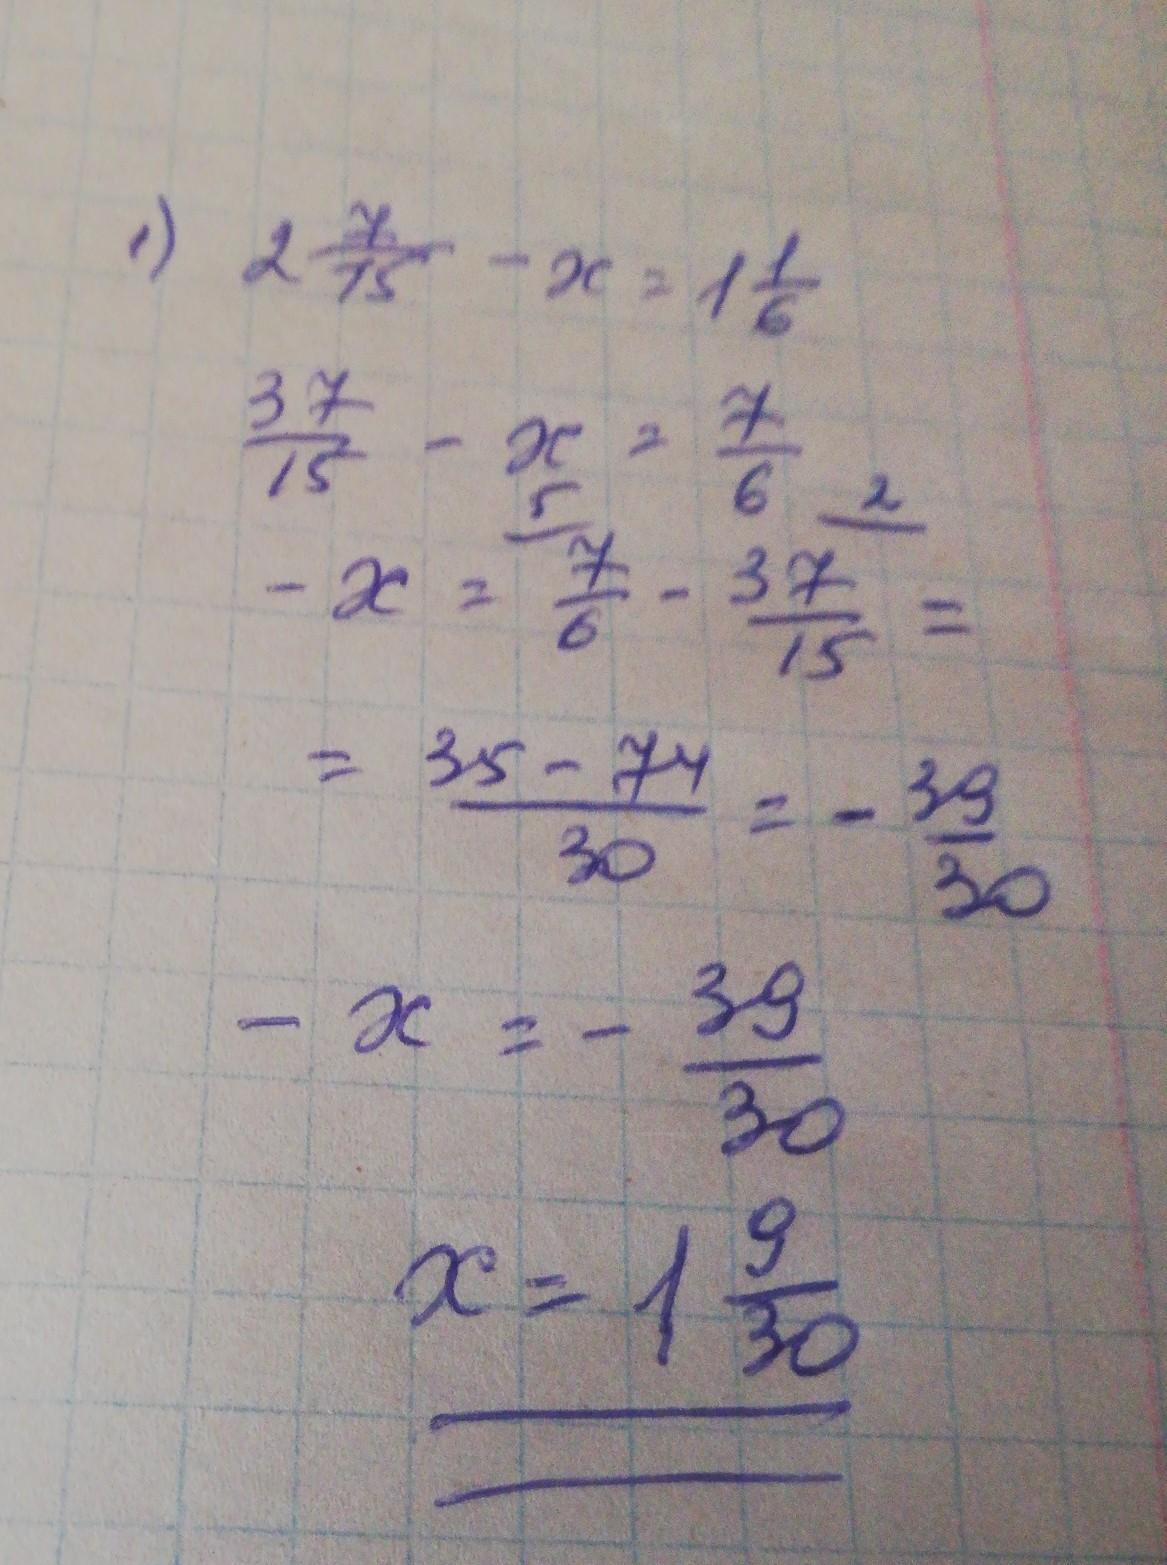 1) 2 7/15 - x = 1 1/6
37/15 - x = 7/6
5 2
- x = 7/6 - 37/15 =
= 35 - 74/30 = - 39/30
- x = - 39/30
x = 1 9/30